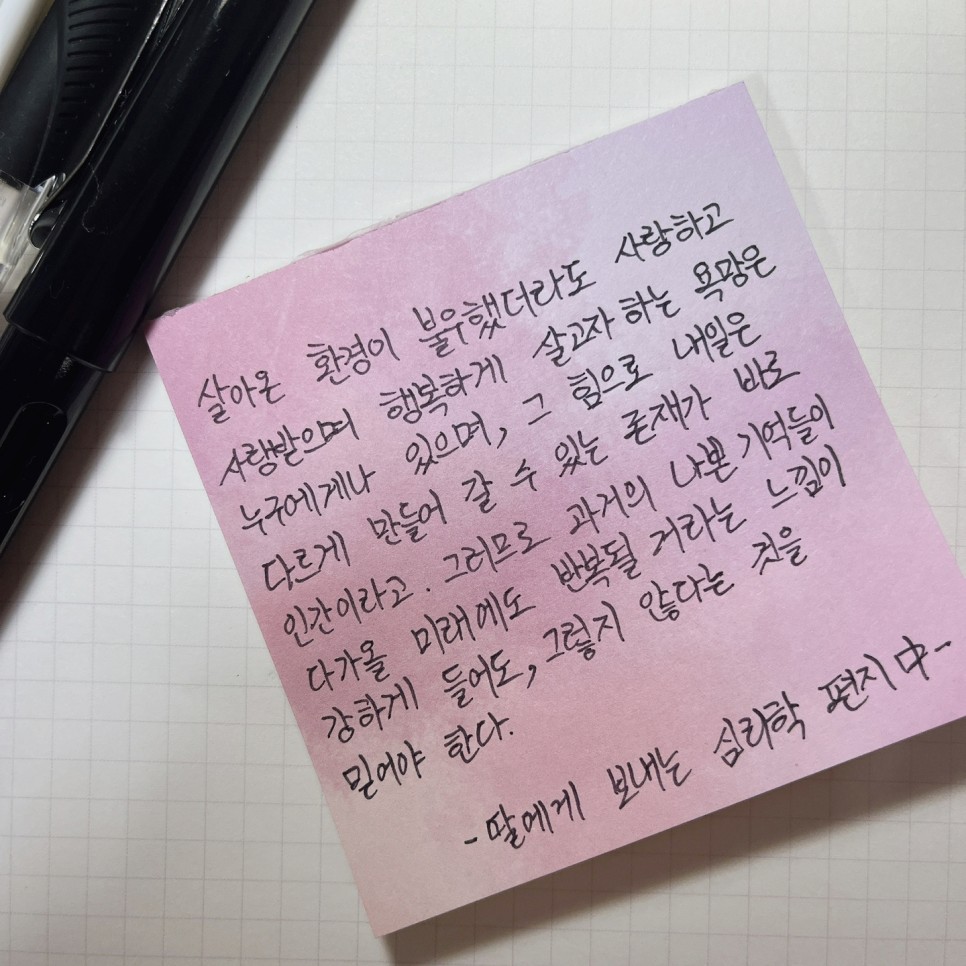 살아온 환경이 불우했더라도 사랑하고
사랑받으며 행복하게 살고자 하는 욕망은
누구에게나 있으며, 그 힘으로 내일은
다르게 만들어 갈 수 있는 존재가 바로
인간이라고. 그러므로 과거의 나쁜 기억들이
다가올 미래에도 반복될 거라는 느낌이
강하게 들어도, 그렇지 않다는 것을
믿어야 한다.
- 딸에게 보내는 심리학 편지 中 -